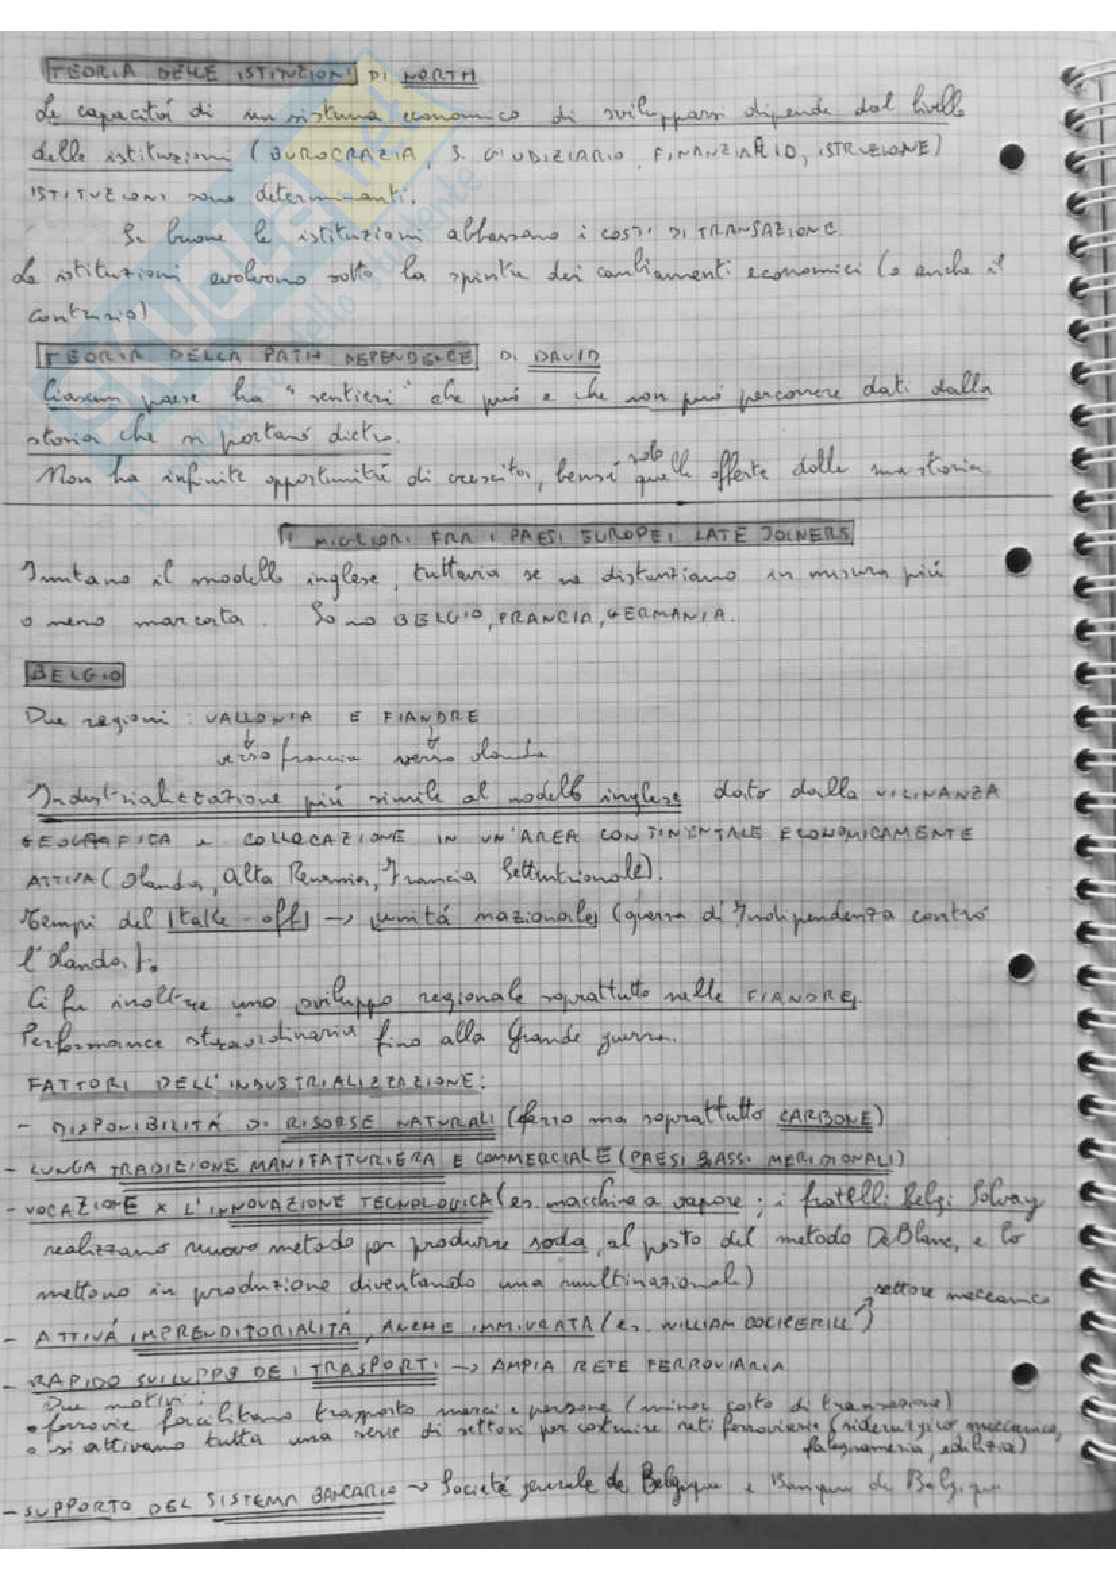 TEORIA DELLE ISTITUZIONI DI NORTH
La capacità di un sistema economico di svilupparsi dipende dal livello
delle istituzioni (BUROCRAZIA, S. GIUDIZIARIO, FINANZIARIO, ISTRUZIONE)
ISTITUZIONI sono determinanti.
Se buone le istituzioni abbassano i COSTI DI TRANSAZIONE.
Le istituzioni evolvono sotto la spinta dei cambiamenti economici (o anche il
contrario)
TEORIA DELLA PATH DEPENDENCE DI DAVID
Ciascun paese ha "sentieri" che può e che non può percorrere dati dalla
storia che si portano dietro.
Non ha infinite opportunità di crescita, bensì solo quelle offerte dalla sua storia
I MIGLIORI FRA I PAESI EUROPEI LATE JOINERS
Imitano il modello inglese, tuttavia se ne distanziano in misura più
o meno marcata. Sono BELGIO, FRANCIA, GERMANIA.
BELGIO
Due regioni: VALLONIA E FIANDRE
verso francia verso olanda
Industrializzazione più simile al modello inglese dato dalla VICINANZA
GEOGRAFICA e COLLOCAZIONE IN UN'AREA CONTINENTALE ECONOMICAMENTE
ATTIVA (Olanda, Alta Renania, Francia Settentrionale).
Tempi del |take-off| → unità nazionale (guerra d'Indipendenza contro
l'Olanda).
Ci fu inoltre uno sviluppo regionale soprattutto nelle FIANDRE.
Performance straordinaria fino alla Grande guerra.
FATTORI DELL'INDUSTRIALIZZAZIONE:
- DISPONIBILITÁ DI RISORSE NATURALI (ferro ma soprattutto CARBONE)
- LUNGA TRADIZIONE MANIFATTURIERA E COMMERCIALE (PAESI BASSI MERIDIONALI)
- VOCAZIONE X L'INNOVAZIONE TECNOLOGICA (es. macchina a vapore; i fratelli Belgi Solvay
realizzano nuovo metodo per produrre soda, al posto del metodo DeBlanc, e lo
mettono in produzione diventando una multinazionale)
settore meccanico
- ATTIVÁ IMPRENDITORIALITÁ, ANCHE IMMIGRATA (es. WILLIAM COCKERILL)
- RAPIDO SVILUPPO DEI TRASPORTI → AMPIA RETE FERROVIARIA
Due motivi:
• ferrovie facilitano trasporto merci e persone (minor costo di transazione)
• si attivano tutta una serie di settori per costruire reti ferroviarie (siderurgico, meccanico,
falegnameria, edilizia)
- SUPPORTO DEL SISTEMA BANCARIO → Societé generale de Belgique e Banque de Belgique